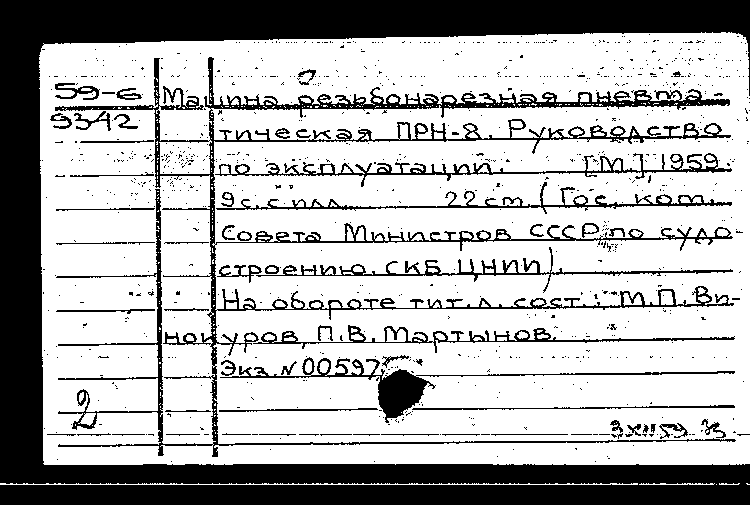 59-6 Машина резьбонарезная пневма-
9342 тическая ПРН-8. Руководство
по эксплуатации. [М.], 1959.
9с. с илл. 22 см. (Гос. ком.
Совета Министров СССР по судо-
строению. СКБ ЦНИИ).
На обороте тит. л. сост.: М.П. Ви-
нокуров, П.В. Мартынов.
Экз. № 00597
2
3 XII 59